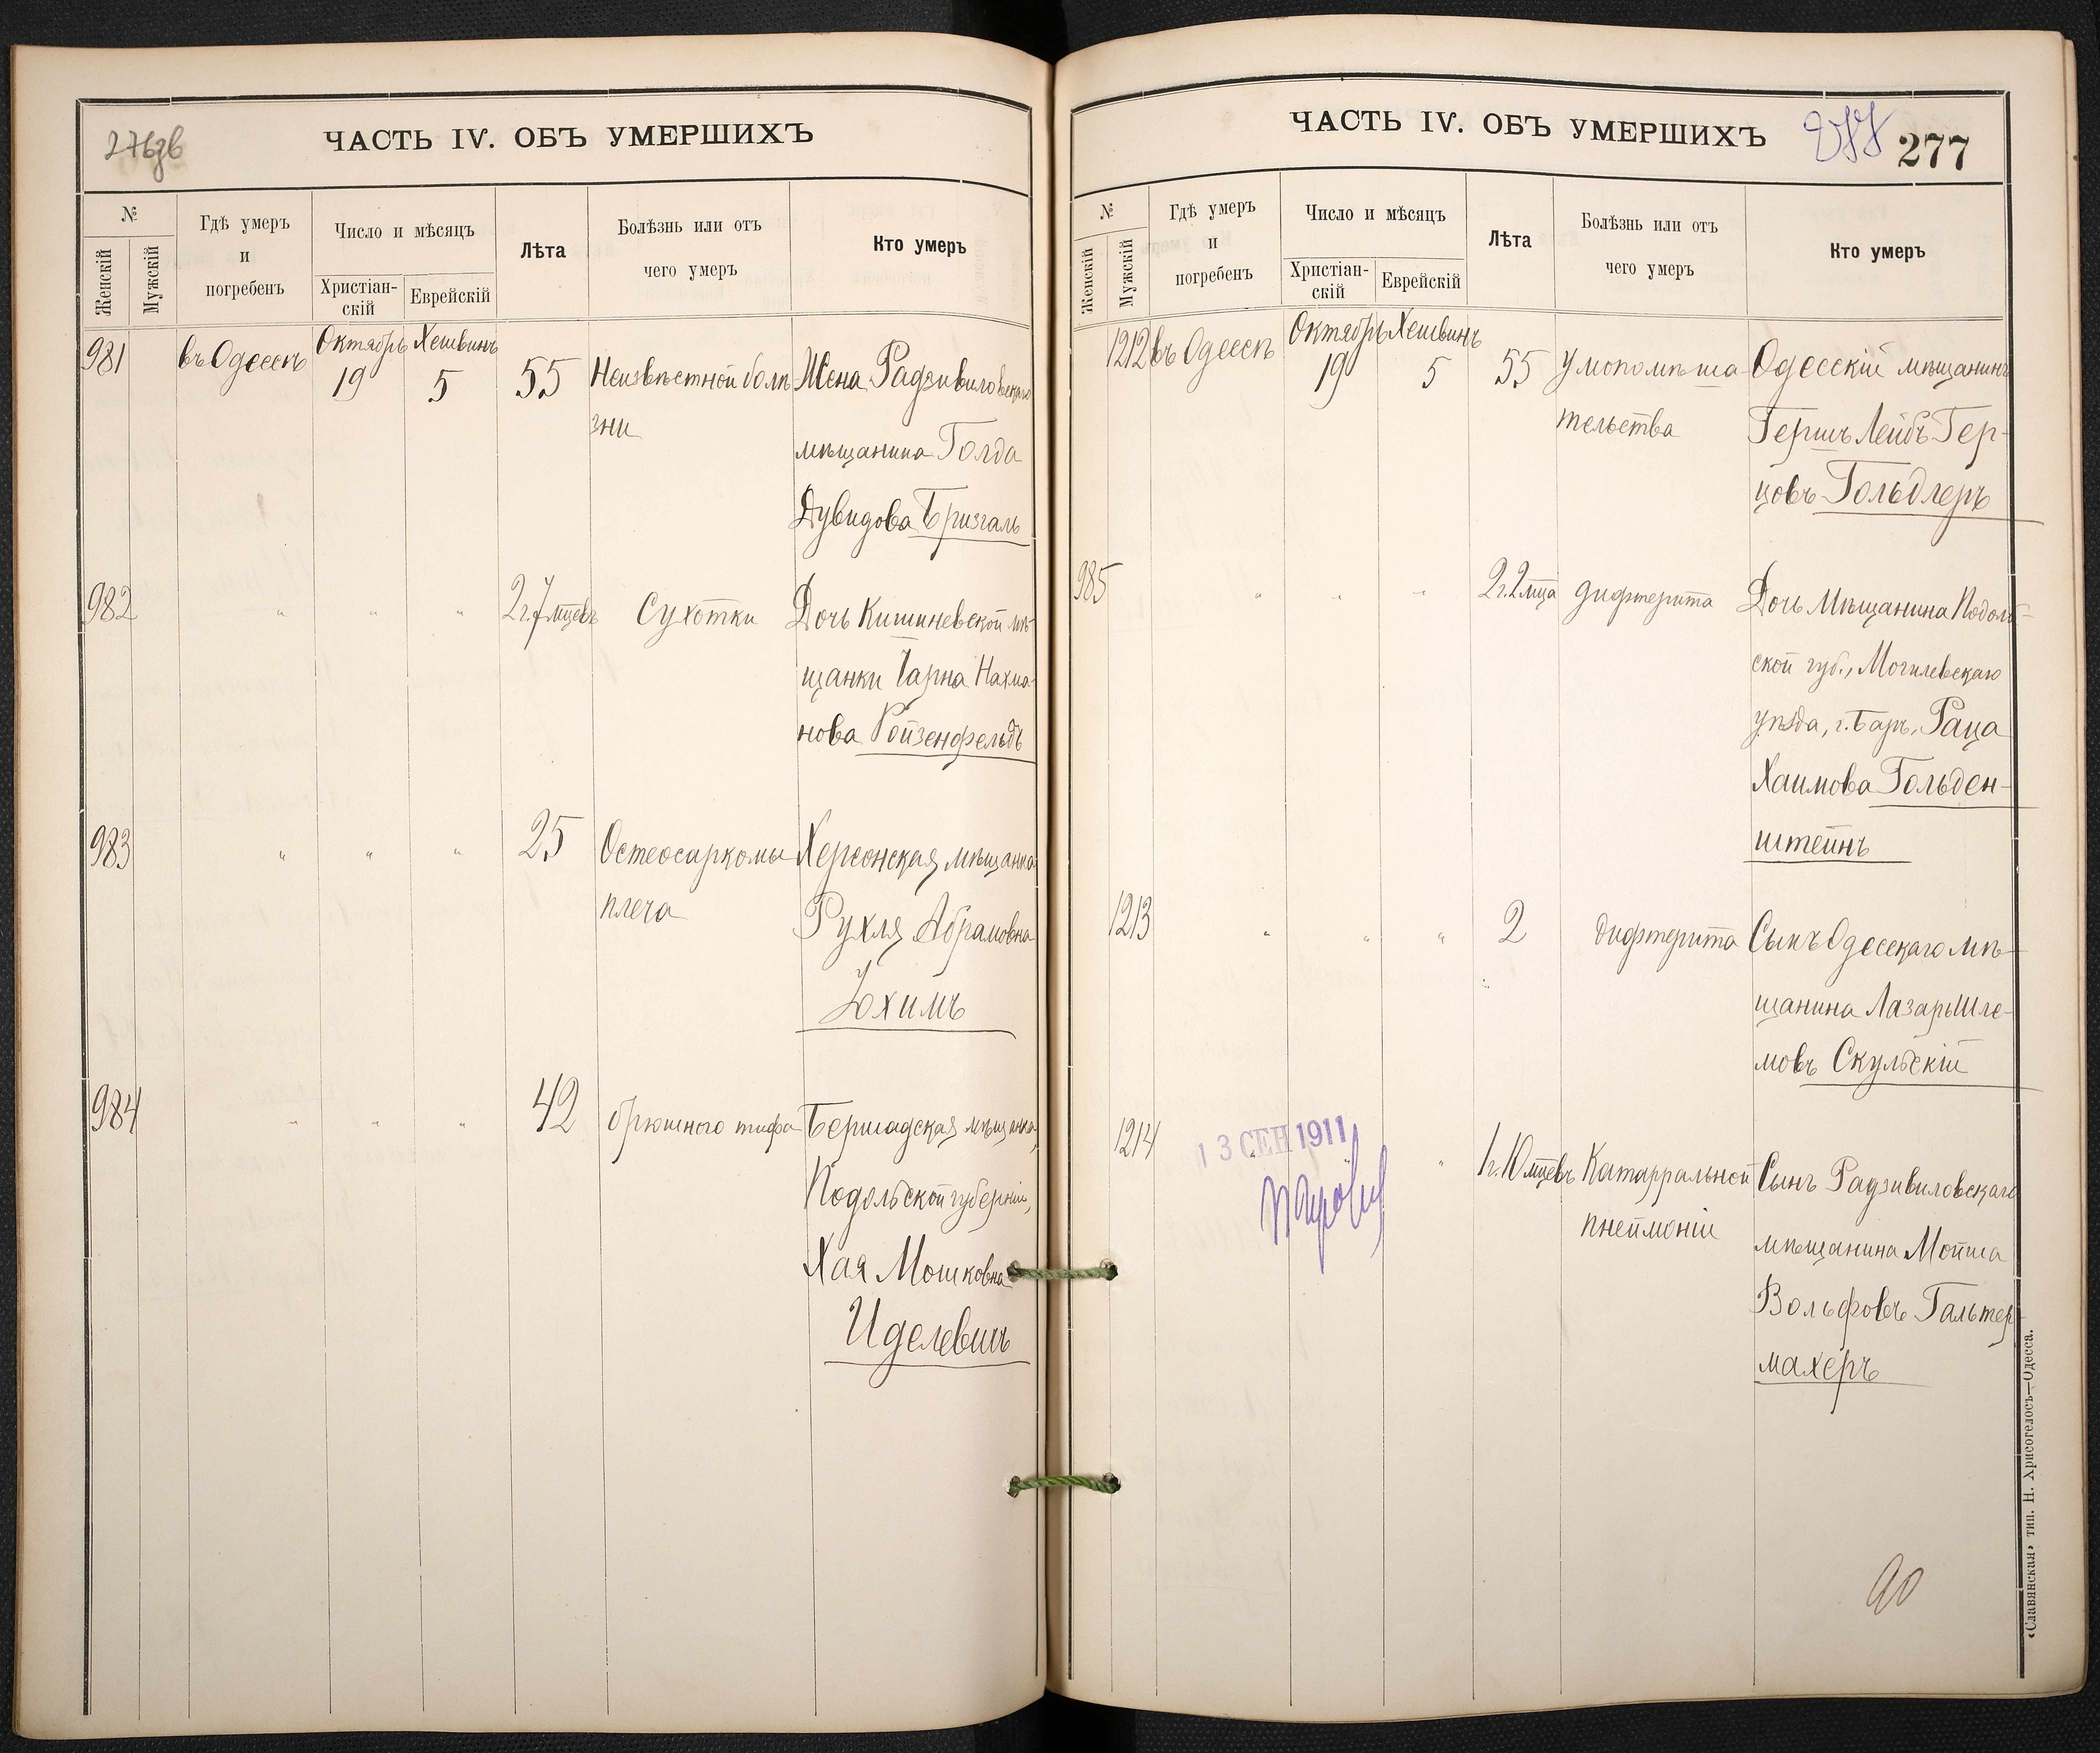 276зв
ЧАСТЬ IV. ОБЪ УМЕРШИХЪ
№
Женскій
Мужскій
Гдѣ умеръ
и
погребенъ
Число и мѣсяцъ
Христіан-
скій
Еврейскій
Лѣта
Болѣзнь или отъ
чего умеръ
Кто умеръ
981
въ Одессѣ
Октябрь
19
Хешвинъ
5
55
Неизвѣстной болѣ
зни
Жена Радзивиловскаго
мѣщанина Голда
Дувидова Бризгаль
982
" " "
2 г. 7 мцевъ
Сухотки
Дочь Кишиневской мѣ-
щанки Чарна Нахма-
нова Ройзенфельдъ
983
" " "
25
Остеосаркомы
плеча
Херсонская мѣщанка
Рухля Абрамовна
Юхимъ
984
" " "
42
брюшного тифа
Бершадская мѣщанка,
Подольской губерніи,
Хая Мошковна
Иделевичъ
ЧАСТЬ IV. ОБЪ УМЕРШИХЪ
277
277
№
Женскій
Мужскій
Гдѣ умеръ
и
погребенъ
Число и мѣсяцъ
Христіан-
скій
Еврейскій
Лѣта
Болѣзнь или отъ
чего умеръ
Кто умеръ
1212
въ Одессѣ
Октябрь
19
Хешвинъ
5
55
Умопомѣша-
тельства
Одесскій мѣщанинъ
Гершъ Лейбъ Гер-
цовъ Гольдлеръ
985
" " "
2 г. 2 мца
дифтерита
Дочь Мѣщанина Подоль-
ской губ., Могилевскаго
уѣзда, г. Баръ, Раца
Хаимова Гольден-
штейнъ
1213
" " "
2
дифтерита
Сынъ Одесскаго мѣ-
щанина Лазарь Шле-
мовъ Скульскій
1214
" " "
13 СЕН 1911
1 г. 10 мцевъ
Катарральной
пнеймоніи
Сынъ Радзивиловскаго
мѣщанина Мойша
Вольфовъ Гальтер-
махеръ
90
«Славянская» тип. Н. Хрисогелосъ—Одесса.